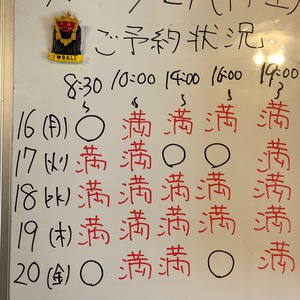 ご予約状況
I ♥ BALI
8:30 10:00 14:00 16:00 19:00
16(月) ○ 満 満 満 満
17(火) 満 満 ○ ○ 満
18(水) 満 満 満 満 満
19(木) 満 満 満 満 満
20(金) ○ 満 満 ○ 満